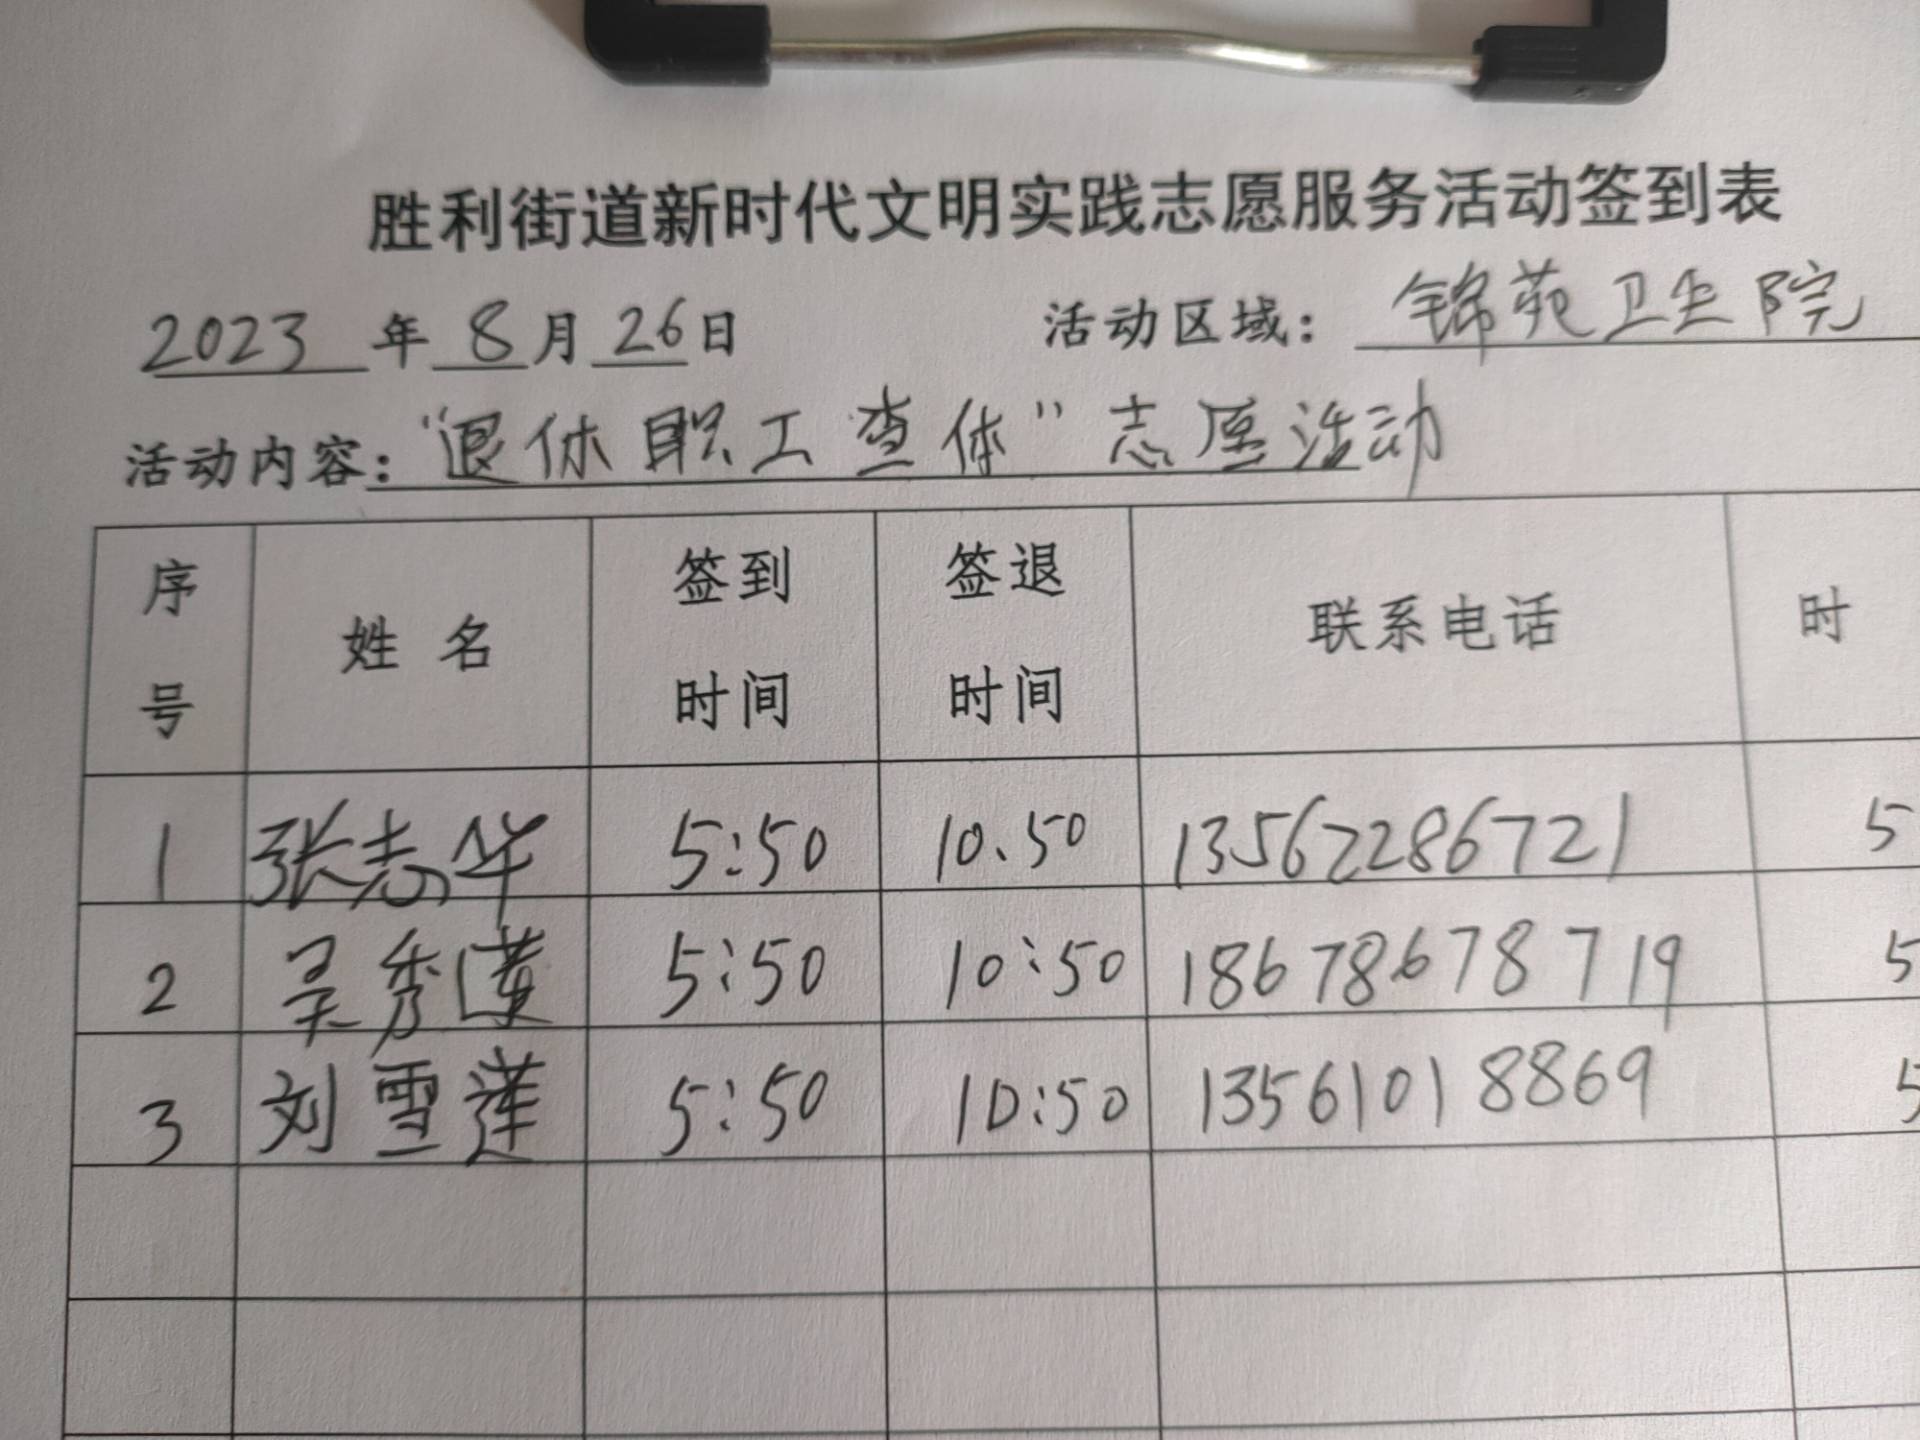 胜利街道新时代文明实践志愿服务活动签到表
2023 年 8 月 26 日 活动区域: 锦苑卫生院
活动内容: “退休职工查体”志愿活动
序号 姓名 签到时间 签退时间 联系电话 时
1 张志华 5:50 10.50 13562286721 5
2 吴秀莲 5:50 10:50 18678678719 5
3 刘雪莲 5:50 10:50 13561018869 5